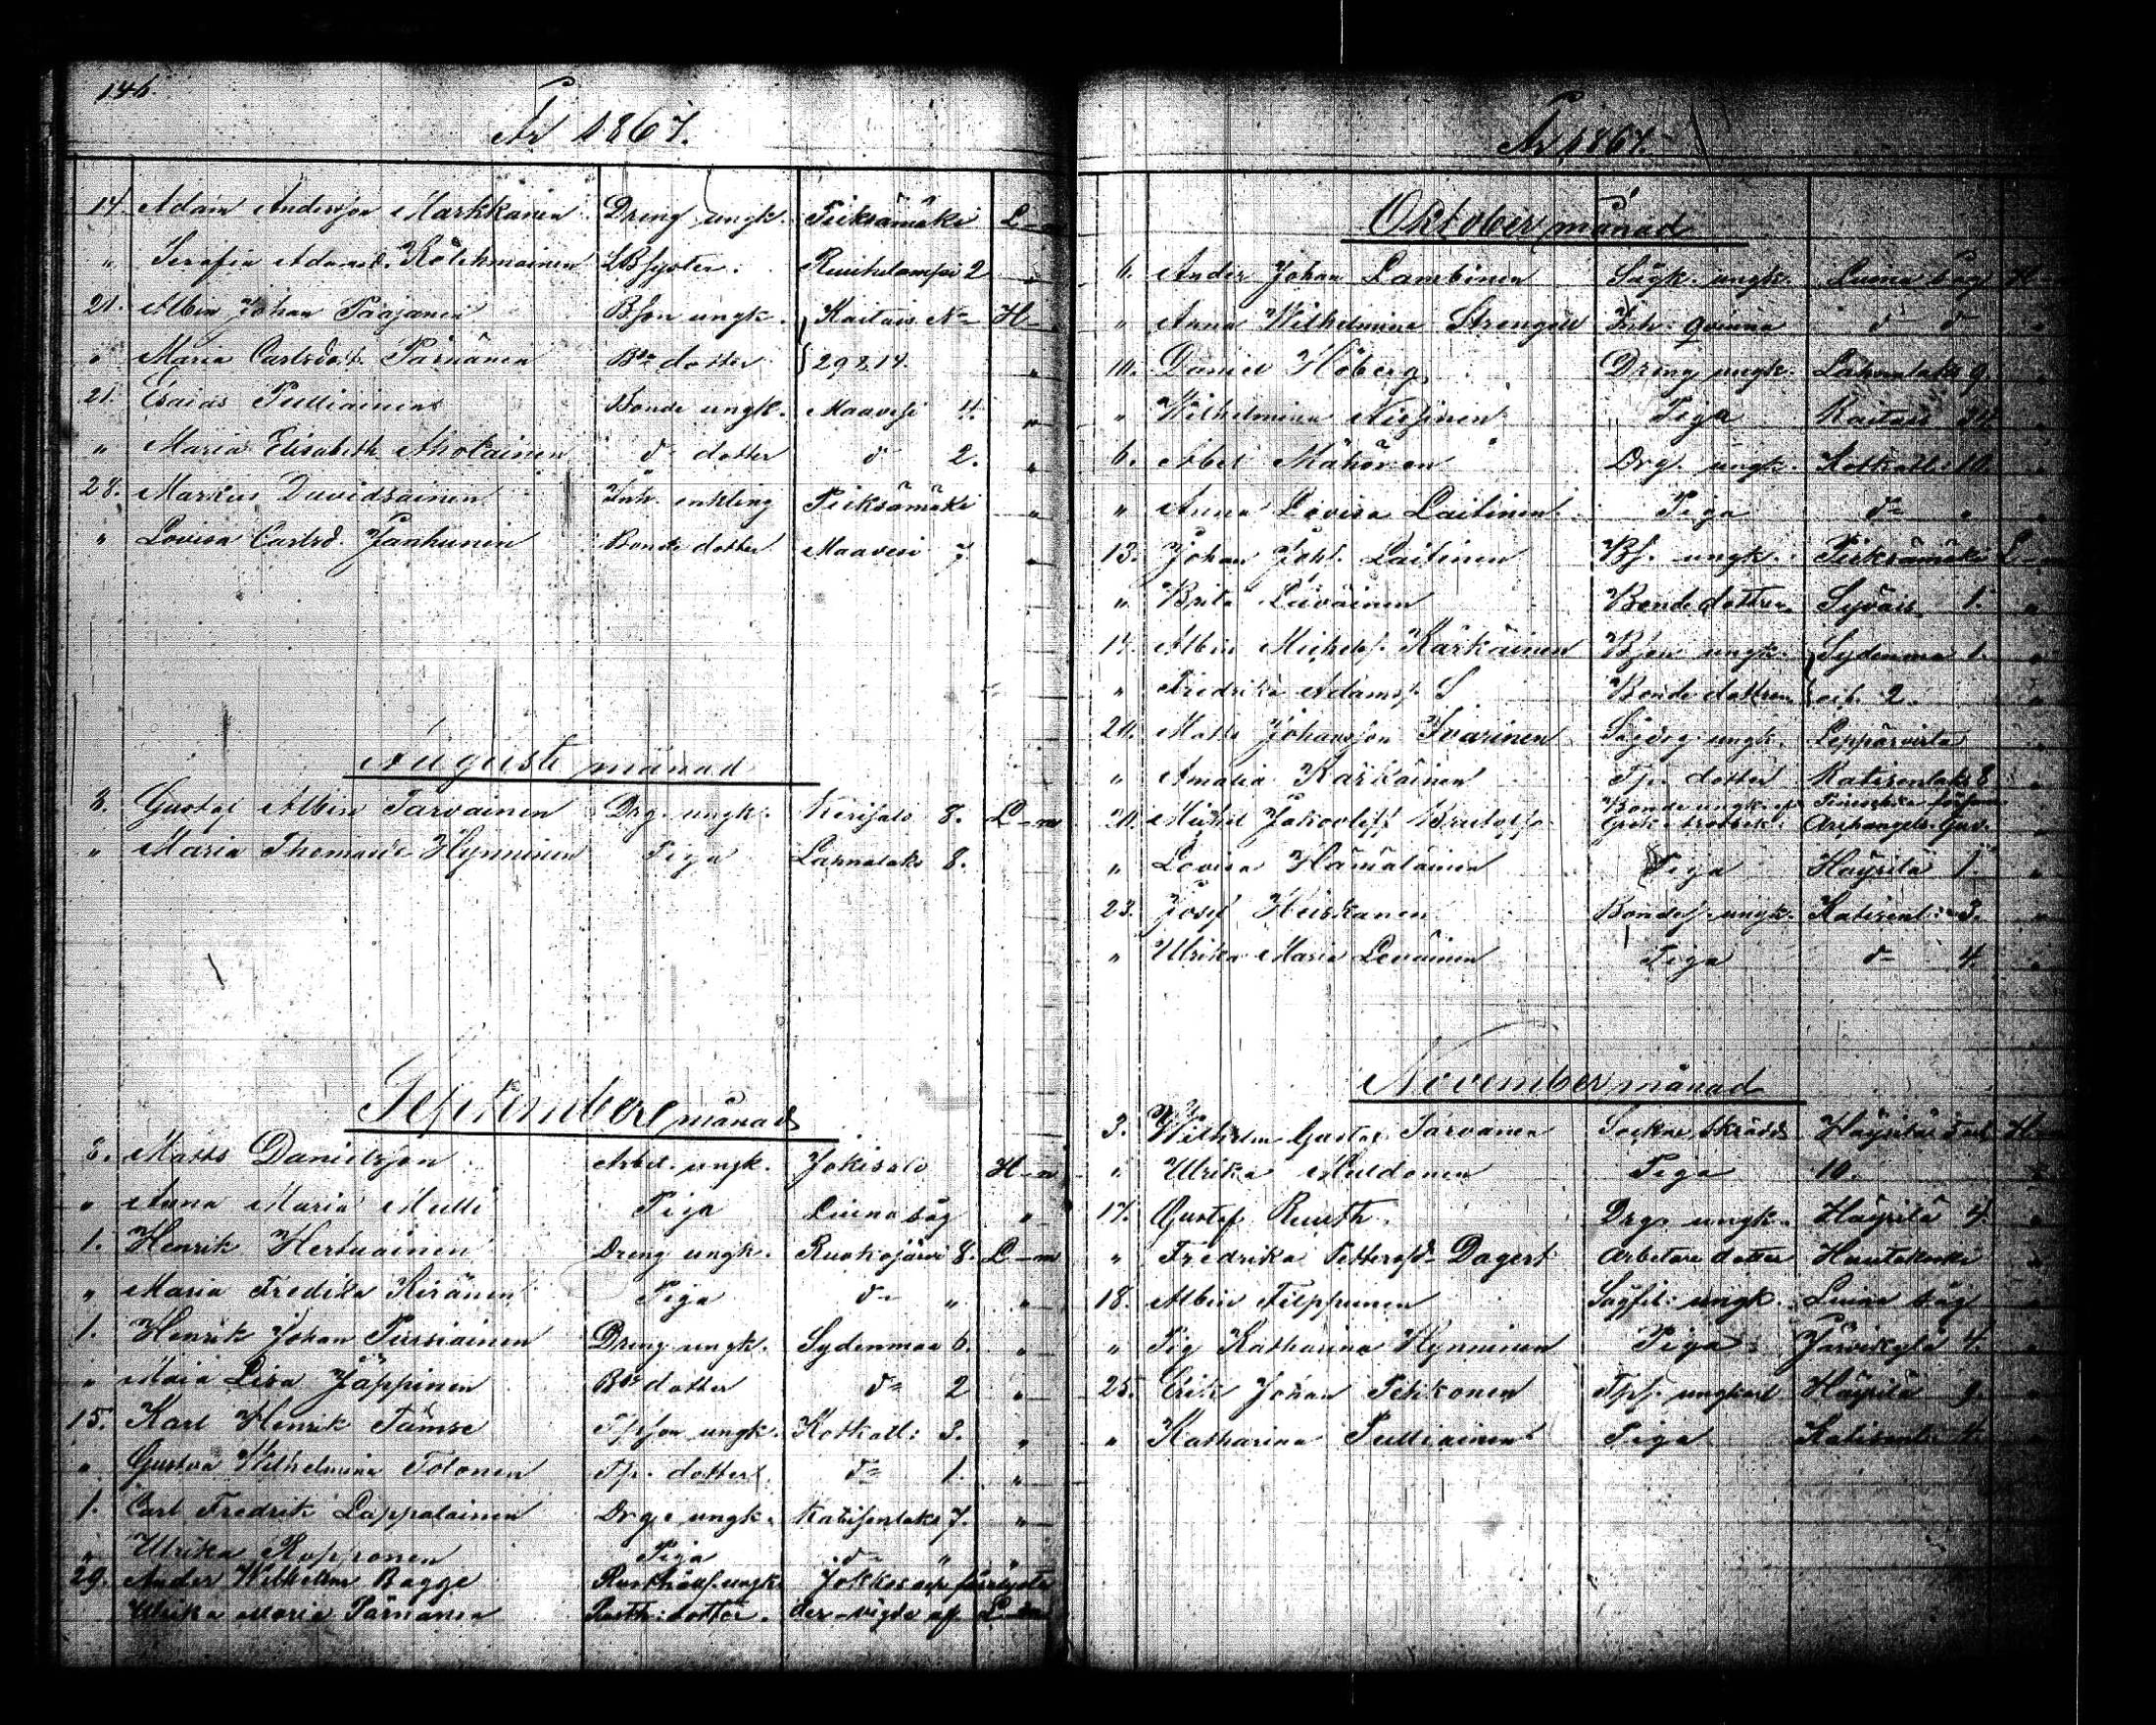 146.
År 1867.
14. Adam Andersson Markkanen Dreng ungk. Pieksämäki L-n
" Serafia Adamsd. Kolehmainen LBsyster. Ruuhilampi 2 "
21. Albin Johan Pääjänen BSon ungk. Kaitais No H-
" Maria Carlsdot. Parnänen Bde dotter 29 & 14. "
21. Esaias Pulliainen Bonde ungk. Maavesi 4. "
" Maria Elisabeth Aholainen do dotter do 2. "
28. Markus Davidsainen Inh. enkling Pieksämäki "
" Lovisa Carlsd. Jaahunen Bonde dotter Maavesi 7. "
Augusti månad
3. Gustaf Albin Tarvainen Drg. ungk. Kerisalo 8. L-n
" Maria Thomasd. Hynninen Piga Lahnalaks 8.
September månad
Matts Danielsson Arbet. ungk. Jokisalo H-n
" Anna Maria Mulli Piga Liuna såg "
1. Henrik Hertuainen Dreng ungk. Ruokojärvi 8. L-n
" Maria Fredika Kiränen Piga do " "
1. Henrik Johan Pursiainen Dreng ungk. Sydenmaa 6. "
" Maia Lisa Jäppinen Bde dotter do 2 "
15. Karl Henrik Tamse Tpson ungk. Kotkatl: 3. "
" Gustva Wilhelmina Tolonen Tp. dotter do 1. "
1. Carl Fredrik Lappalainen Drg. ungk. Katisenlaks 7. "
" Ulrika Ropponen Piga do "
29. Ander Wilhelm Bagge Rusthålls. ungk. Jokkas
Ulrika Maria Parnänen Rusth: dotter. vigde af L-n
År 1867.
Oktober månad
6. Ander Johan Lambinen Sågk. ungk. Liuna såg H-n
" Anna Wilhelmina Strengell Inh: qvinna do do "
10. Daniel Höberg Dreng ungk. Lahnalaks 9. "
" Wilhelmina Nissinen Piga Kaitais 24 "
6. Abel Mähönen Drg. ungk. Kotkatl: 10. "
" Anna Lovisa Laitinen Piga do " "
13. Johan Joh. Laitinen Bs. ungk. Pieksämäki L-n
" Brita Leiväinen Bonde dotter Syväis 1. "
14. Albin Michels. Kärkäinen BSon ungk. Sydenmaa 1. "
" Fredrika Adamsd. S Bonde dottren och 2. "
20. Matts Johansson Ivarinen Sågdrg. ungk. Leppävirta "
" Amalia Karkäinen Tp. dotter Katisenlaks 8 "
20. Michel Jakovleff Bonde ungk. af Archangels Guv. "
" Lovisa Hämäläinen Piga Häyrilä 1. "
23. Josef Heiskanen Bondes. ungk. Katisenl: 3. "
" Ulrika Maria Leväinen Piga do 4 "
November månad
3. Wilhelm Gustaf Tarvainen Sockne Skrädd. Häyrilä H-n
" Ulrika Muldonen Piga 10.
17. Gustaf Ruuth Drg. ungk. Häyrilä 4. "
" Fredrika Pettersd. Dagert Arbetare dotter Hautakoski "
18. Albin Filppunen Sågfil: ungk. Liuna såg "
" Pig Katharina Hynninen Piga Järvikylä 4. "
25. Erik Johan Pitkonen Tps. ungkarl Häyrilä 9. "
" Katharina Pulliainen Piga Katisenl: 4. "